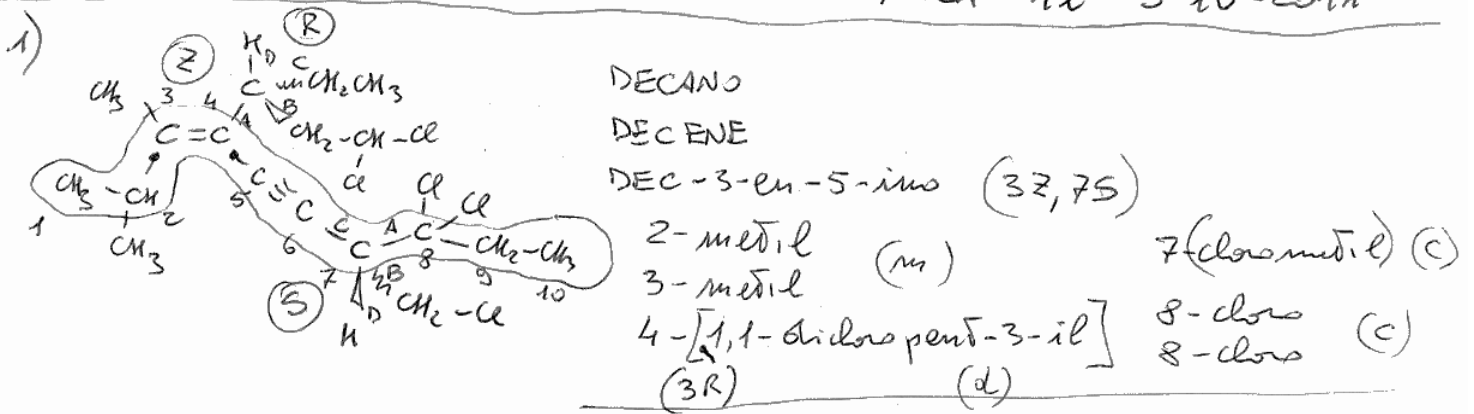 1)
Z
R
H D C
CH3 3 4 C CH2CH3
A B
C=C CH2-CH-Cl
Cl
CH3-CH C≡C Cl Cl
1 2 5
CH3 6 C A C-CH2-CH3
7 B 8 9 10
S
H D CH2-Cl
DECANO
DECENE
DEC-3-en-5-ino (3Z,7S)
2-metil
3-metil
(m)
4-[1,1-dicloropent-3-il]
(3R) (d)
7-(clorometil) (c)
8-cloro
8-cloro
(c)